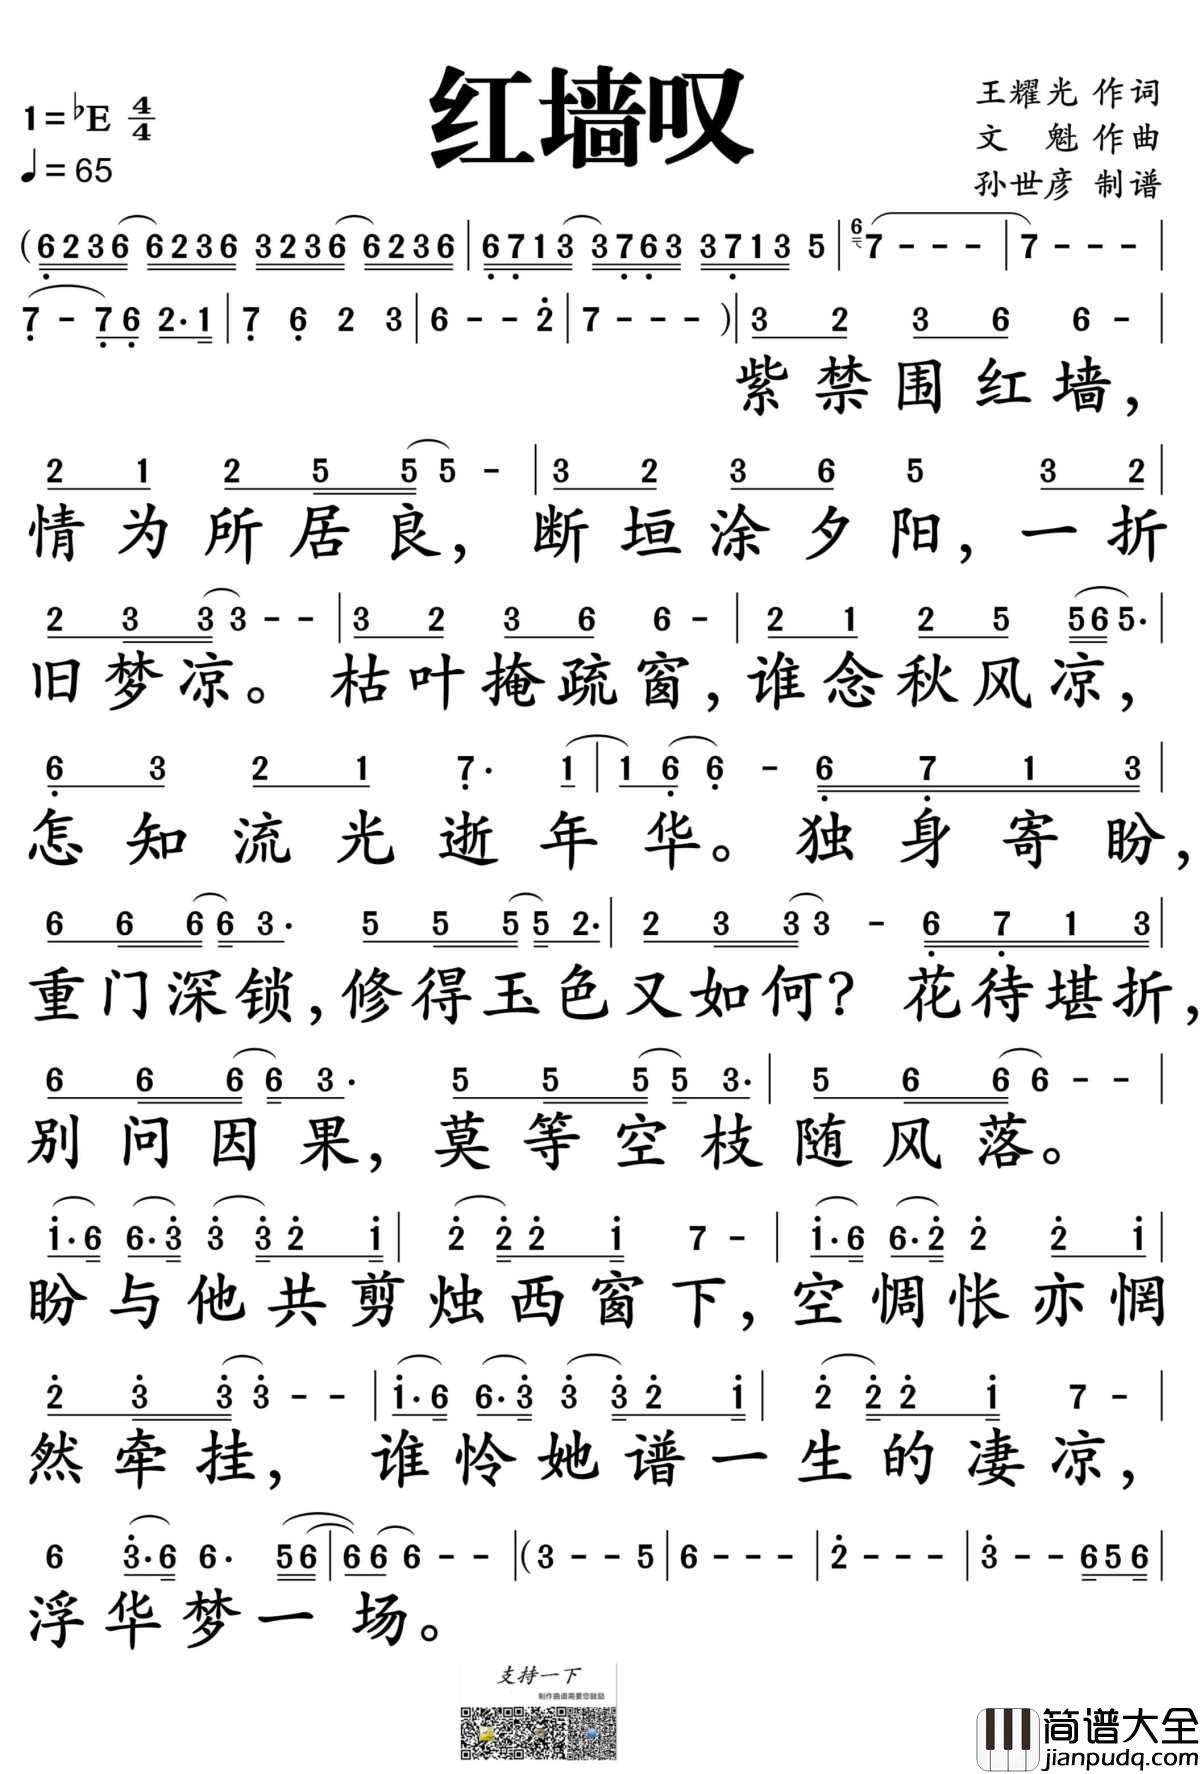 红墙叹
1=♭E 4/4
♩=65
王耀光 作词
文 魁 作曲
孙世彦 制谱
(6236 6236 3236 6236|6713 3763 3713 5|6 7---|7---|
7-76 2·1|7 6 2 3|6--2|7---)|3 2 3 6 6-|
紫禁围红墙,
2 1 2 5 5 5-|3 2 3 6 5 3 2|
情为所居良,断垣涂夕阳,一折
2 3 3 3--|3 2 3 6 6-|2 1 2 5 56 5·|
旧梦凉。枯叶掩疏窗,谁念秋风凉,
6 3 2 1 7· 1|1 6 6-6 7 1 3|
怎知流光逝年华。独身寄盼,
6 6 6 6 3· 5 5 5 5 2·|2 3 3 3-6 7 1 3|
重门深锁,修得玉色又如何?花待堪折,
6 6 6 6 3· 5 5 5 5 3·|5 6 6 6--|
别问因果,莫等空枝随风落。
1·6 6·3 3 3 2 1|2 2 2 1 7-|1·6 6·2 2 2 1|
盼与他共剪烛西窗下,空惆怅亦惘
2 3 3 3--|1·6 6·3 3 3 2 1|2 2 2 1 7-|
然牵挂,谁怜她谱一生的凄凉,
6 3·6 6· 56|6 6 6--|(3--5|6---|2---|3--656|
浮华梦一场。
支持一下
制作曲谱需要您鼓励
简谱大全
jianpudq.com